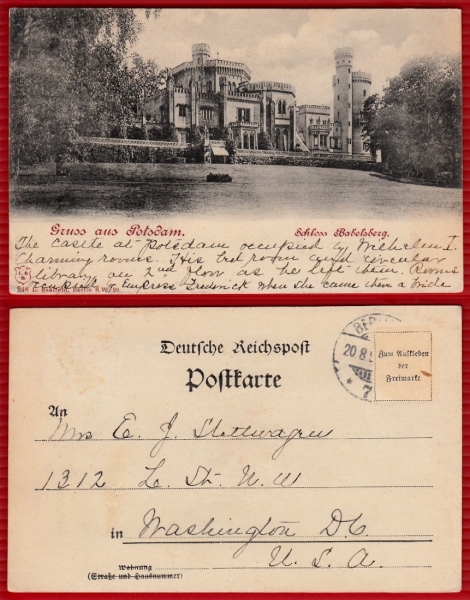 Gruss aus Potsdam.
Schloss Babelsberg.
The castle at Potsdam occupied by Wilhelm I.
Charming rooms. His bed room and circular
library on 2nd floor as he left them. Rooms
occupied by Empress Frederick when she came there a bride
Berlin S.W.
Deutsche Reichspost
Postkarte
BER
20.8.
7
Zum Aufkleben
der
Freimarke
An
Mrs E. J. Stellwagen
1312 L St. N.W
in Washington D.C.
U.S.A.
Wohnung
(Straße und Hausnummer)